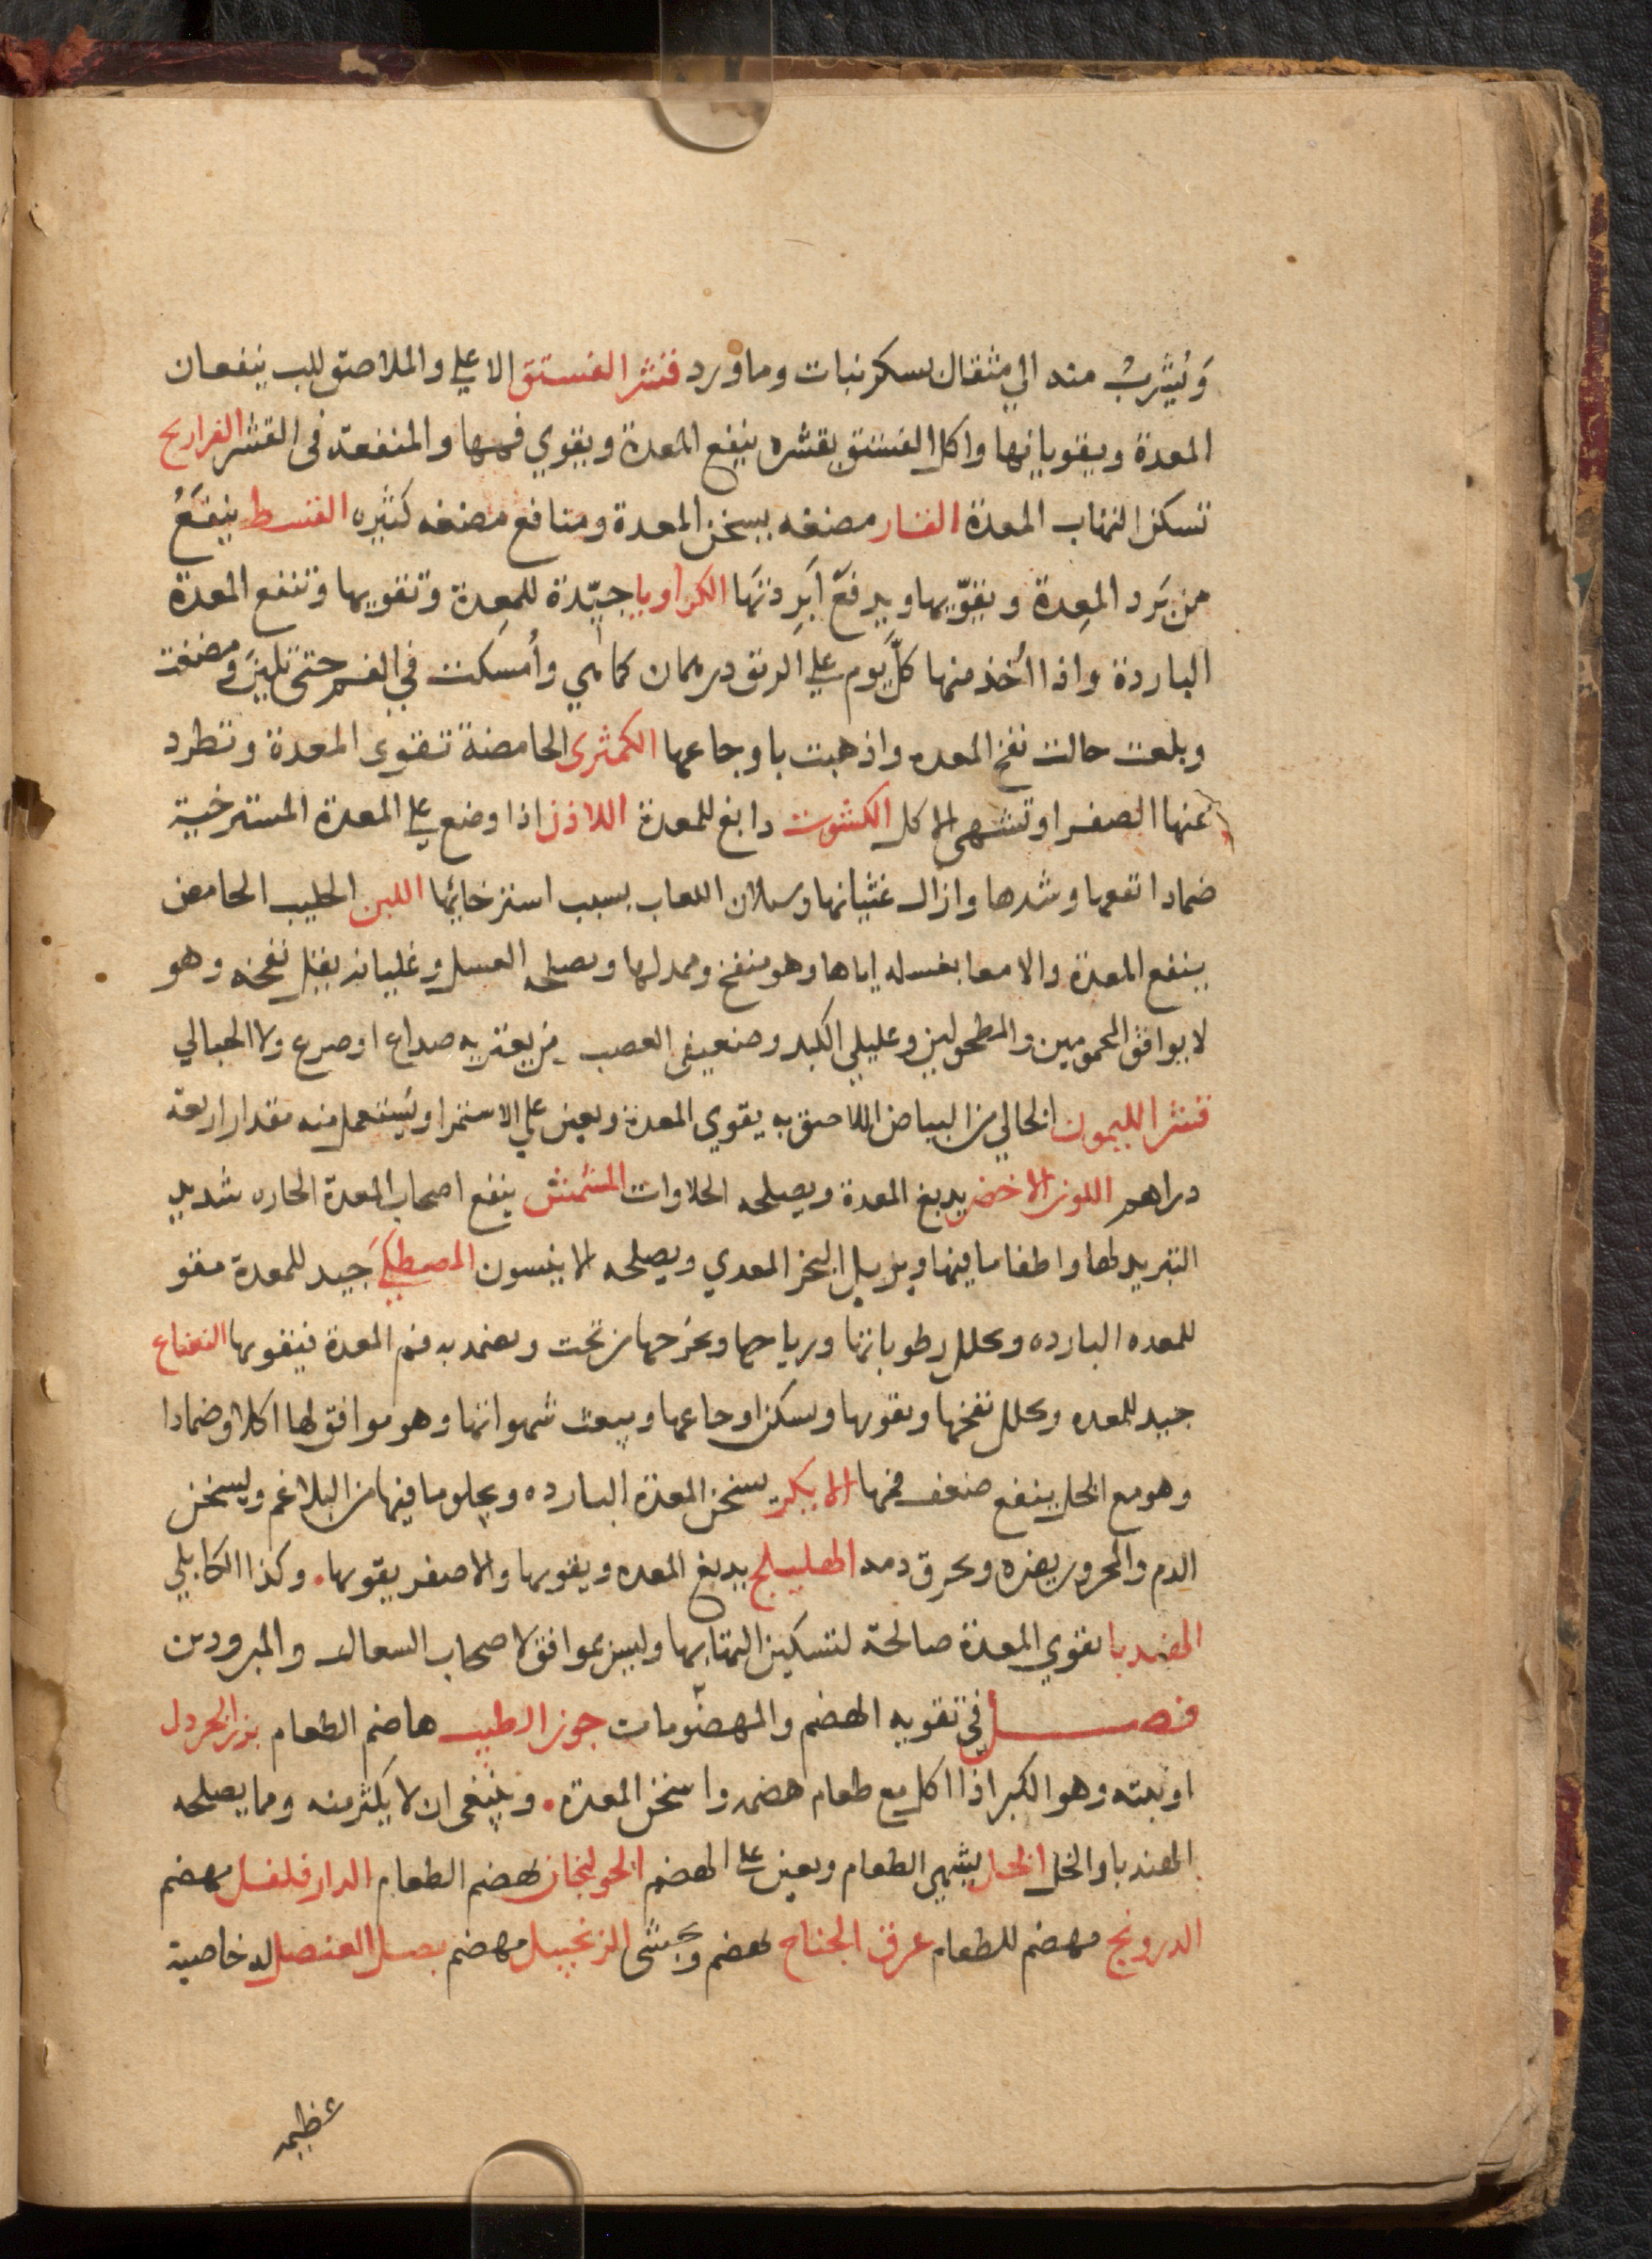 وَيُشرَبُ منه الي مثقال بسكر نبات وماورد قشر الفستق الاعلي والملاصق للب ينفعان
المعدة ويقويانها واكل الفستق بقشره ينفع المعدة ويقوي فمها والمنفعة فى القشر الفراريح
تسكن التهاب المعدة الفار مضغه يسخن المعدة ومنافع مضغه كثيره القسط ينفَعُ
من بَرد المعِدة ويقوّيها ويدفَعُ اَبرِدتَها الكراويا جيّدة للمعِدة وتقويها وتنفع المعدة
الباردة واذا اُخذ منها كلَّ يوم علي الريق درهمان كماهي واُمسكت في الفم حتى تلينَ ومضغت
وبلعت حالت نفخ المعده واذهبت باوجاعها الكمثرى الحامضة تقوى المعدة وتطرد
عنها الصفرا وتشهى الاكل الكشوت دابغ للمعدة اللاذن اذا وضع علي المعدة المسترخية
ضمادا نفعها وشدها وازال غثيانها وسيلان اللعاب بسبب استرخائها اللبن الحليب الحامض
ينفع المعدة والامعا بغسله اياها وهو منفخ وممدلها ويصلحه العسل وغليانه يقلل نفخه وهو
لا يوافق المحمومين والمطحولين وعليلي الكبد وضعيفى العصب من يعتريه صداع اوصرع ولا الحبالي
قشر الليمون الخالي من البياض اللاصق به يقوي المعدة ويعين علي الاستمرا ويُستعمل منه مقدار اربعة
دراهم اللوز الاخضر يدبغ المعدة ويصلحه الحلاوات المشمش ينفع اصحاب المعدة الحاره شديد
التبريد لها واطفا ما فيها ويزيل البخر المعدي ويصلحه الانيسون المصطكي جيد للمعدة مقو
للمعده البارده ويحلل رطوباتها ورياحها ويخرجها من تحت ويضمد به فم المعدة فيقويها النعناع
جيد للمعده ويحلل نفخها ويقويها ويسكن اوجاعها ويبعث شهواتها وهو موافق لها اكلا وضمادا
وهو مع الخل ينفع ضعف فمها الايكر يسخن المعدة البارده ويجلو ما فيها من البلاغم ويسخن
الدم والمحرور يضره ويحرق دمه الهليلج يدبغ المعده ويقويها والاصفر يقويها. وكذا الكابلي
الهندبا يقوي المعدة صالحة لتسكين التهابها وليس بموافق لاصحاب السعال والمبرودين
فصل في تقويه الهضم والمهضومات جوز الطيب هاضم الطعام بزر الخردل
او نبته وهو الكبر اذا اكل مع طعام هضمه واسخن المعدة. وينبغى ان لا يكثر منه ومما يصلحه
الهندبا والخل الخل يشهى الطعام ويعين علي الهضم الخولنجان يهضم الطعام الدارفلفل مهضم
الدرونج مهضم للطعام عرق الجناح يهضم ويجشى الزنجبيل مهضم بصل العنصل له خاصية
عظيمه